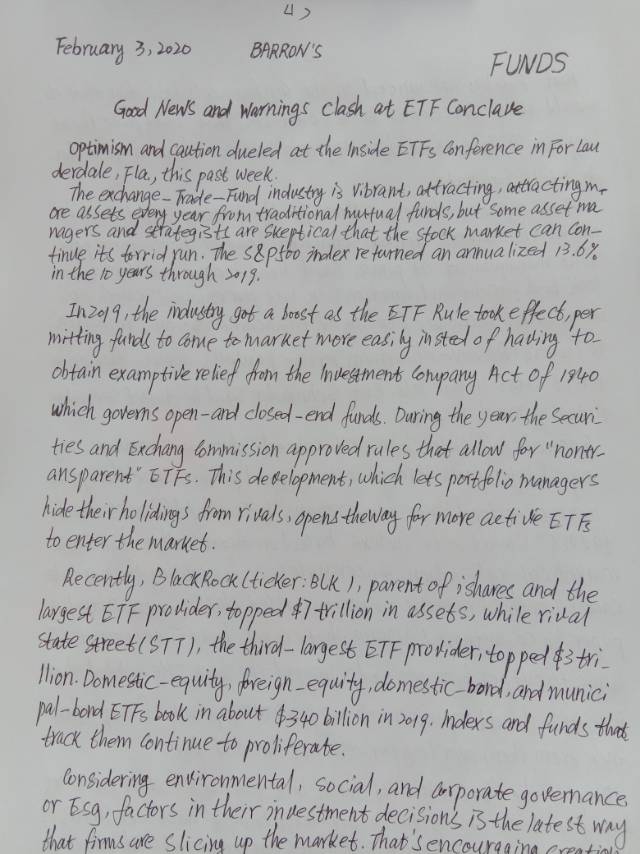 4>
February 3, 2020 BARRON'S FUNDS
Good News and Warnings clash at ETF Conclave
Optimism and Caution dueled at the Inside ETFs Conference in For Lau
derdale, Fla., this past week.
The exchange-Trade-Fund industry is vibrant, attracting, attracting m-
ore assets every year from traditional mutual funds, but some asset ma
nagers and strategists are skeptical that the stock market can con-
tinue its torrid run. The S&P500 index returned an annualized 13.6%
in the 10 years through 2019.
In 2019, the industry got a boost as the ETF Rule took effect, per
mitting funds to come to market more easily insted of having to
obtain examptive relief from the Investment Company Act Of 1940
which governs open-and closed-end funds. During the year, the Securi
ties and Exchang Commission approved rules that allow for "nontr-
ansparent" ETFs. This development, which lets portfolio managers
hide their holidings from rivals, opens theway for more active ETFs
to enter the market.
Recently, BlackRock (ticker: BLK), parent of ishares and the
largest ETF provider, topped $7 trillion in assets, while rival
State Street (STT), the third-largest ETF provider, topped $3 tri-
llion. Domestic-equity, foreign-equity, domestic-bond, and munici
pal-bond ETFs book in about $340 billion in 2019. Indexs and funds that
track them continue to proliferate.
Considering environmental, social, and corporate governance,
or Esg, factors in their investment decisions is the latest way
that firms are slicing up the market. That's encouraging creation